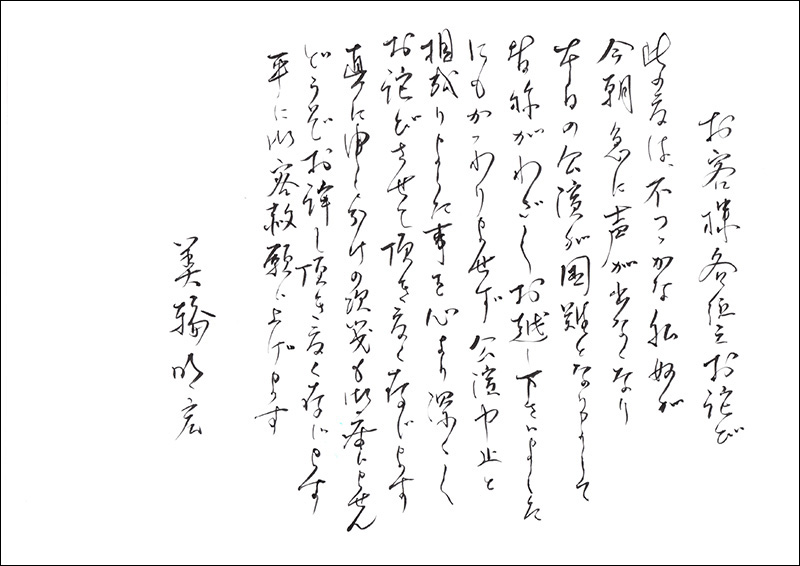 お客様各位にお詫び
此の度は、不つゝかな私奴が
今朝急に声が出なくなり
本日の公演が困難となりまして
皆様がわざ〱お越し下さいました
にもかゝわりませず公演中止と
相成りました事を心より深く〱
お詫びさせて頂き度く存じます
真に申し分けの次第も御座いません
どうぞお許し頂き度く存じます
平に御容赦願い上げます
美輪明宏